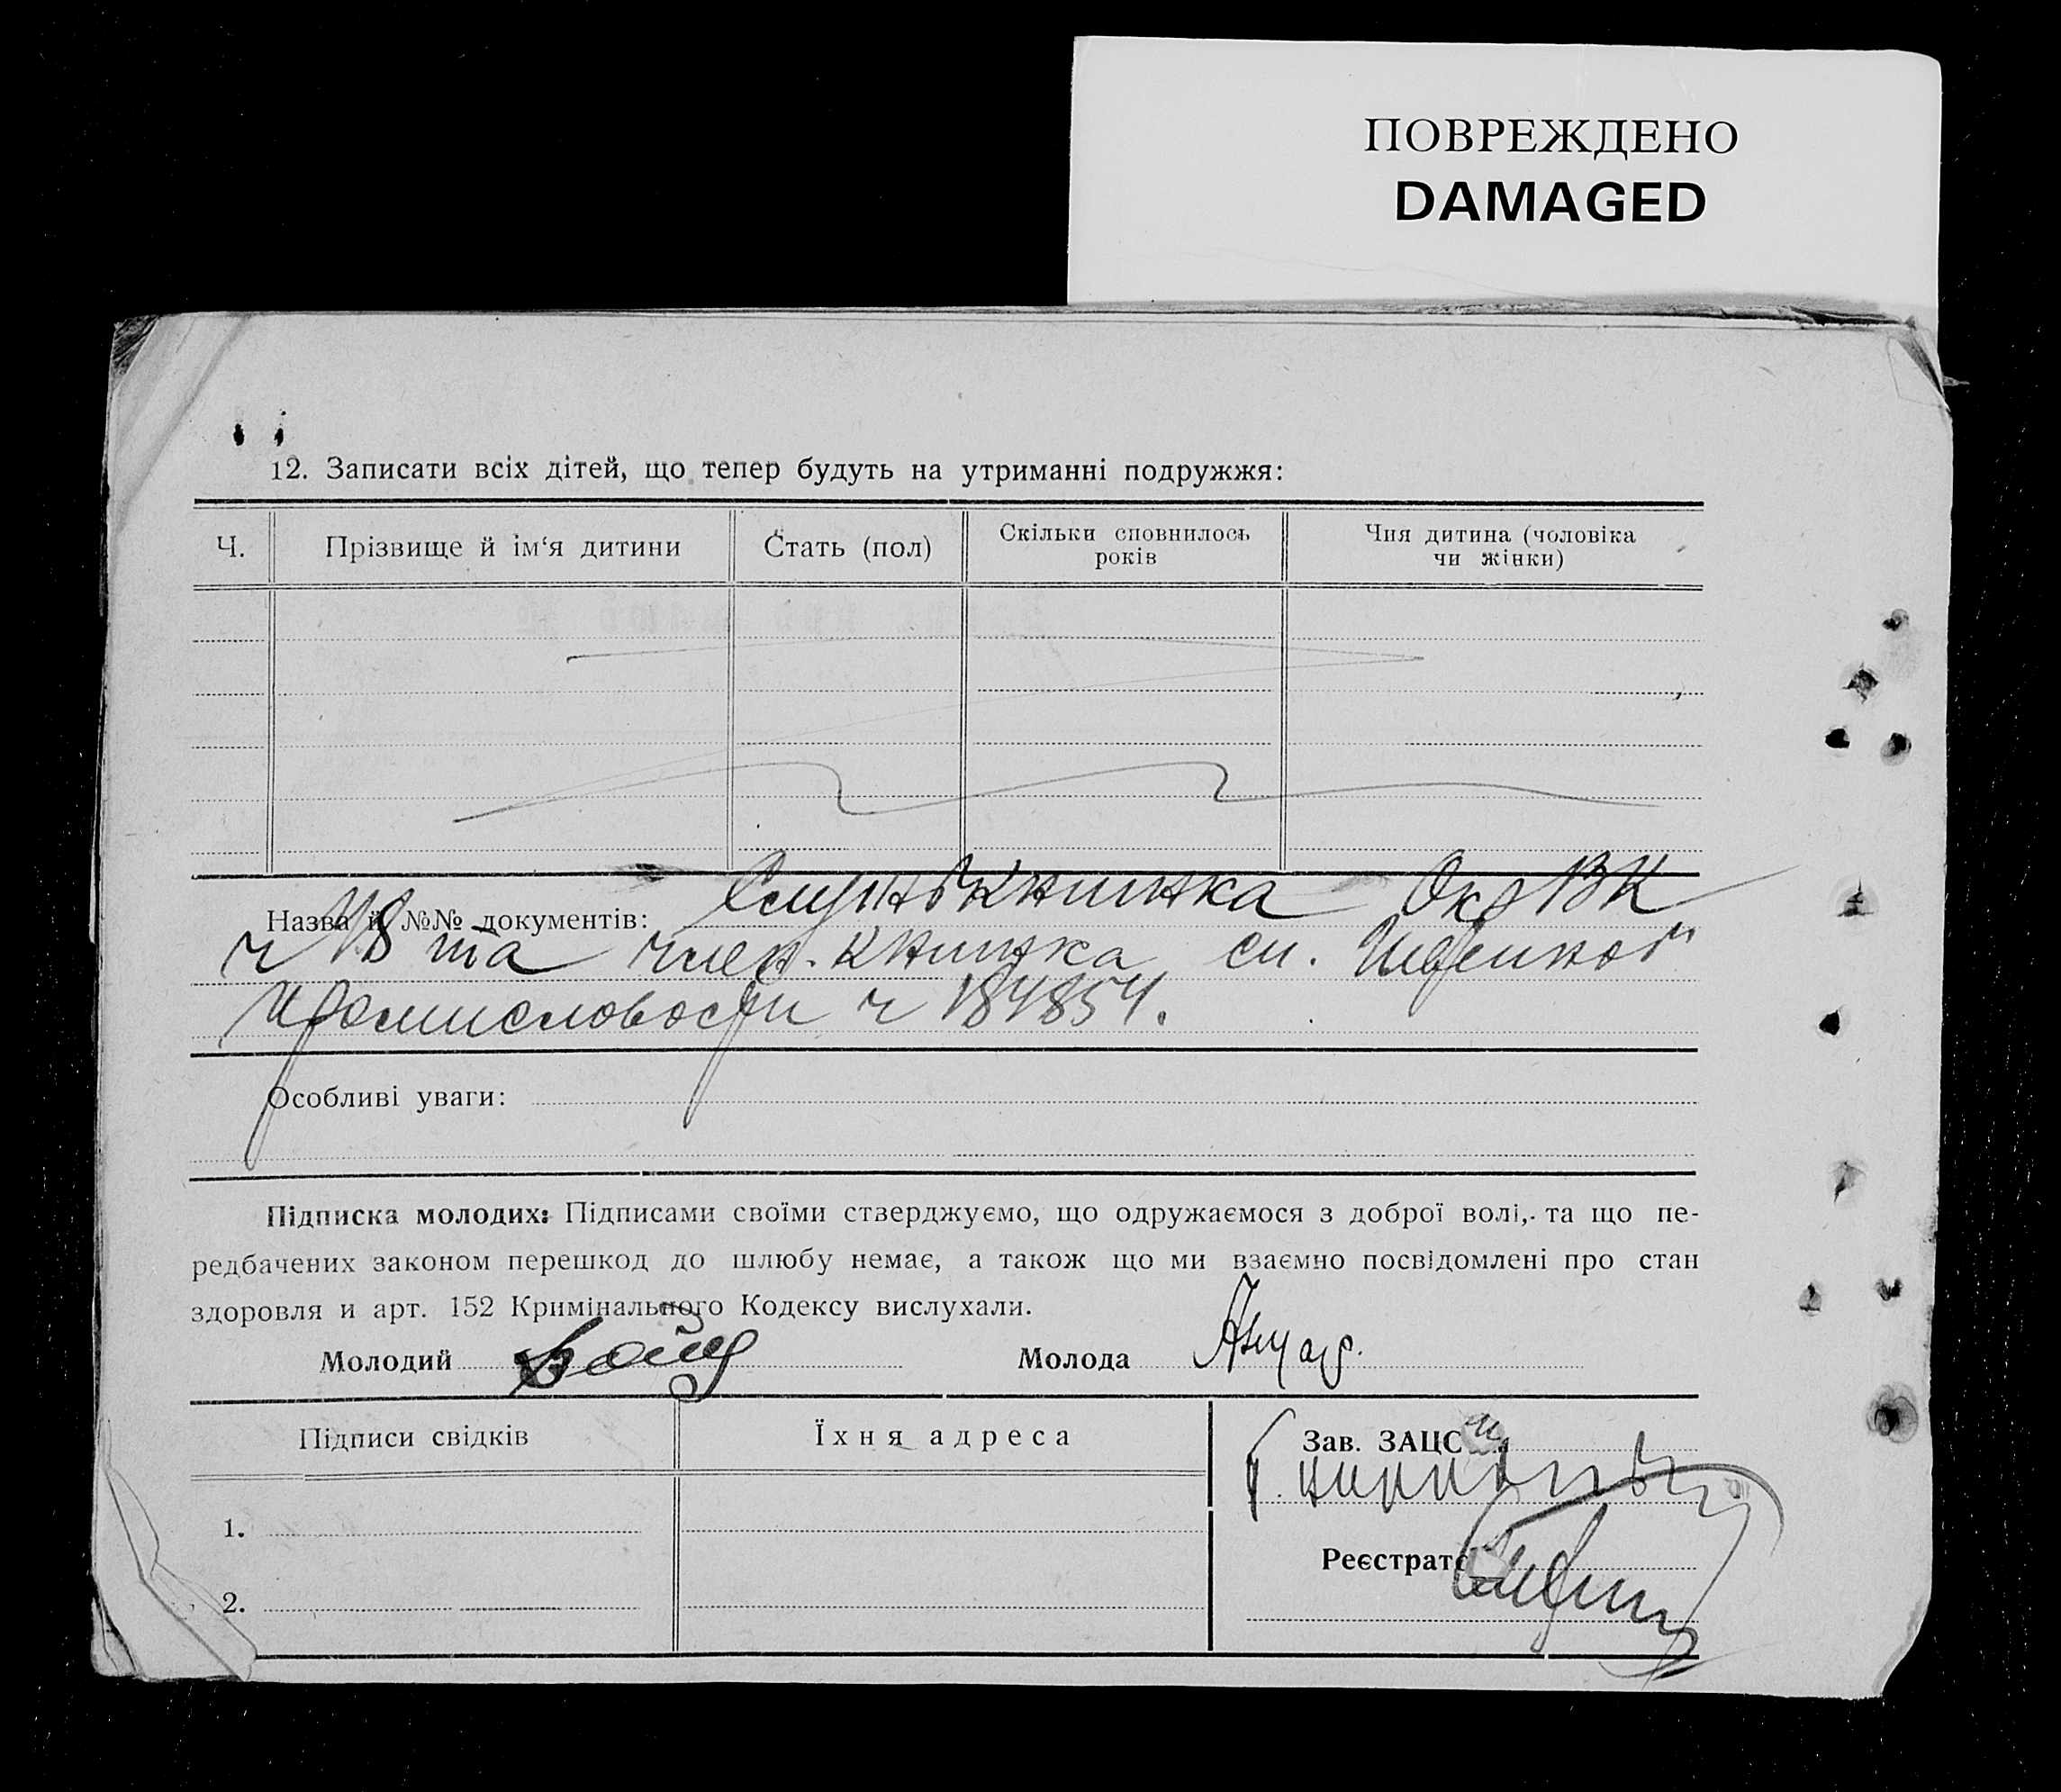 ПОВРЕЖДЕНО
DAMAGED
12. Записати всіх дітей, що тепер будуть на утриманні подружжя:
Ч.
Прізвище й ім‘я дитини
Стать (пол)
Скільки сповнилось
років
Чия дитина (чоловіка
чи жінки)
Назва й №№ документів: книжка ОкрВК
ч та член. книжка сп.
промисловости ч
Особливі уваги:
Підписка молодих: Підписами своїми стверджуємо, що одружаємося з доброї волі, та що пе-
редбачених законом перешкод до шлюбу немає, а також що ми взаємно посвідомлені про стан
здоровля и арт. 152 Кримінального Кодексу вислухали.
Молодий
Молода
Підписи свідків
Їхня адреса
Зав. ЗАЦС
1.
Реєстрато
2.